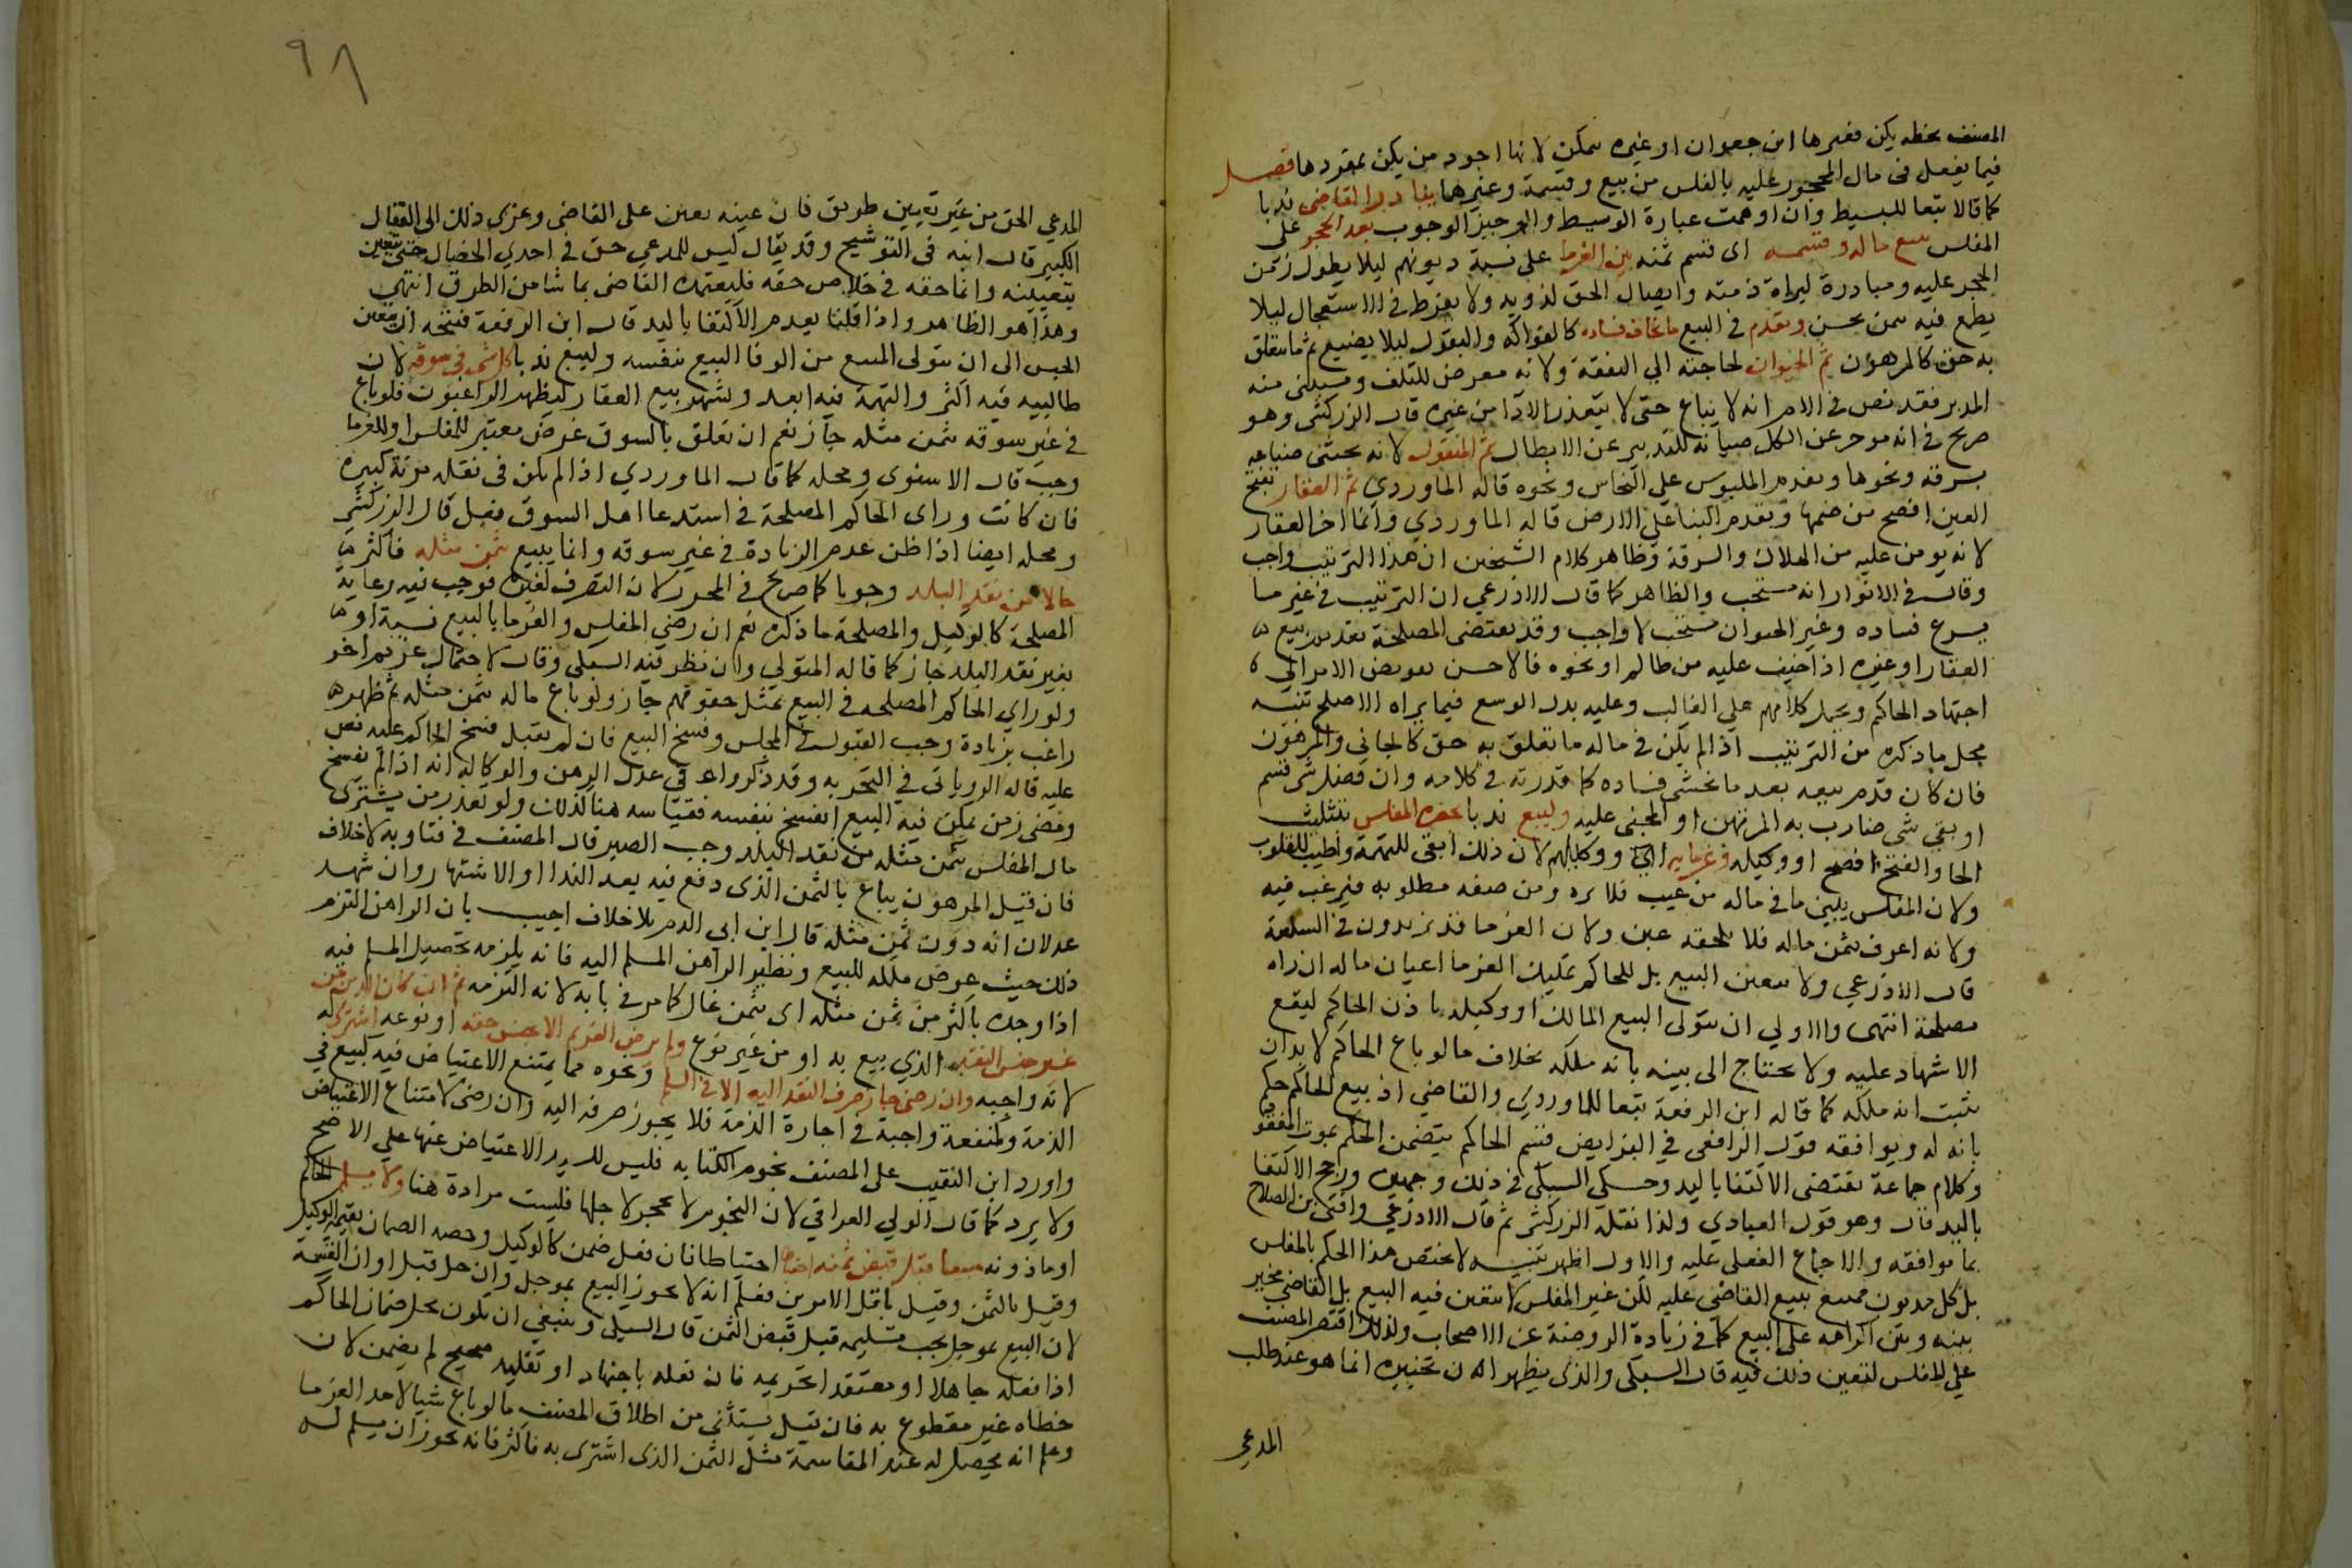 المصنف بخطه يكن فغيرها ابن جعوان او غيره بمكن لانها اجود من يكن بمفردها فصل
فيما يفعل في مال المحجور عليه بالفلس من بيع وقسمة وغيرهما يبادر القاضي ندبا
كما قالا تبعا للبسيط وان اوهمت عبارة الوسيط والوجيز الوجوب بعد الحجر على
المفلس ببيع ماله وقسمه اي قسم ثمنه بين الغرما على نسبة ديونهم ليلا يطول زمن
الحجر عليه ومبادرة لبراة ذمته وايصال الحق لذويه ولا يفرط في الاستعجال ليلا
يطمع فيه بثمن بخس ويقدم في البيع ما يخاف فساده كالفواكه والبقول ليلا يضيع ثم ما يتعلق
به حق كالمرهون ثم الحيوان لحاجته الي النفقة ولانه معرض للتلف ويستثنى منه
المدبر فقد نص في الام انه لا يباع حتى لا يتعذر الادا من غيره قال الزركشي وهو
صريح في انه يوخر عن الكل صيانة للتدبير عن الابطال ثم المنقول لانه يخشى ضياعه
بسرقة ونحوها ويقدم الملبوس علي النحاس ونحوه قاله الماوردي ثم العقار بفتح
العين افصح من ضمها ويقدم البنا علي الارض قاله الماوردي وانما اخر العقار
لانه يومن عليه من الهلاك والسرقة وظاهر كلام الشيخين ان هذا الترتيب واجب
وقال في الانوار انه مستحب والظاهر كما قال الاذرعي ان الترتيب في غير ما
يسرع فساده وغير الحيوان مستحب لا واجب وقد يقتضي المصلحة تقديم بيع
العقار او غيره اذا خيف عليه من ظالم او نحوه فالاحسن تفويض الامر الي
اجتهاد الحاكم ويحمل كلامهم على الغالب وعليه بذل الوسع فيما يراه الاصلح تنبيه
محل ما ذكره من الترتيب اذا لم يكن في ماله ما تعلق به حق كالجاني والمرهون
فان كان قدم بيعه بعد ما يخشى فساده كما قدرته في كلامه وان فضل شي قسم
او بقي شي ضارب به المرتهن او المجني عليه وليبع ندبا بحضرة المفلس بتثليث
الحا والفتح افصح او وكيله وغرمايه اي او وكلايهم لان ذلك انفى للتهمة واطيب للقلوب
ولان المفلس يبين ما في ماله من عيب فلا يرد ومن صفة مطلوبة فيرغب فيه
ولانه اعرف بثمن ماله فلا يلحقه غبن ولان الغرما قد يزيدون في السلعة
قال الاذرعي ولا يتعين البيع بل للحاكم تمليك الغرما اعيان ماله ان راه
مصلحة انتهى والاولي ان يتولى البيع المالك او وكيله باذن الحاكم ليقع
الاشهاد عليه ولا يحتاج الى بينة بانه ملكه بخلاف ما لو باع الحاكم لا بد ان
يثبت انه ملكه كما قاله ابن الرفعة تبعا للماوردي والقاضي اذ بيع الحاكم حكم
بانه له ويوافقه قول الرافعي في الفرايض قسم الحاكم يتضمن الحكم بموت المفقود
وكلام جماعة يقتضي الاكتفا باليد وحكى السبكي في ذلك وجهين ورجح الاكتفا
باليد قال وهو قول العبادي ولذا نقله الزركشي ثم قال الاذرعي وافتى ابن الصلاح
بما يوافقه والاجماع الفعلي عليه والاول اظهر تنبيه لا يختص هذا الحكم بالمفلس
بل كل مديون ممتنع يبيع القاضي عليه لكن غير المفلس لا يتعين فيه البيع بل القاضي مخير
بينه وبين اكراهه على البيع كما في زيادة الروضة عن الاصحاب ولذلك اقتصر المصنف
علي المفلس لتعين ذلك فيه قال السبكي والذي يظهر ان تخييره انما هو عند طلب
المدعي
٩٨
المدعي الحق من غير تعيين طريق فان عينه تعين على القاضي وعزى ذلك الى القفال
الكبير قال ابنه في التوشيح وقد يقال ليس للمدعي حق في احدي الخصال حتى يتعين
بتعيينه وانما حقه في خلاص حقه فليعتمد القاضي بما شا من الطرق انتهى
وهذا هو الظاهر واذا قلنا بعدم الاكتفا باليد قال ابن الرفعة فيتجه ان يتعين
الحبس الى ان يتولى الممتنع من الوفا البيع بنفسه وليبع ندبا كل شي في سوقه لان
طالبيه فيه اكثر والتهمة فيه ابعد ويشهر بيع العقار ليظهر الراغبون فلو باع
في غير سوقه بثمن مثله جاز نعم ان تعلق بالسوق غرض معتبر للمفلس او للغرما
وجب قال الاسنوي ومحله كما قال الماوردي اذا لم يكن في نقله مونة كبيرة
فان كانت وراى الحاكم المصلحة في استدعا اهل السوق فعل قال الزركشي
ومحله ايضا اذا ظن عدم الزيادة في غير سوقه وانما يبيع بثمن مثله فاكثر
حالا من نقد البلد وجوبا كما صرح في المحرر لان التصرف لغيره فوجب فيه رعاية
المصلحة كالوكيل والمصلحة ما ذكره نعم ان رضي المفلس والغرما بالبيع نسية او
بغير نقد البلد جاز كما قاله المتولي وان نظر فيه السبكي وقال لاحتمال غريم اخر
ولو راي الحاكم المصلحة في البيع بمثل حقوقهم جاز ولو باع ماله بثمن مثله ثم ظهر
راغب بزيادة وجب القبول في المجلس وفسخ البيع فان لم يقبل فسخ الحاكم عليه نص
عليه قاله الروياني في التجربة وقد ذكروا في عدل الرهن والوكالة انه اذا لم يفسخ
ومضى زمن يمكن فيه البيع انفسخ بنفسه فقياسه هنا كذلك ولو تعذر من يشتري
مال المفلس بثمن مثله من نقد البلد وجب الصبر قال المصنف في فتاويه لا خلاف
فان قيل المرهون يباع بالثمن الذي دفع فيه بعد الندا والاشتهار وان شهد
عدلان انه دون ثمن مثله قال ابن ابي الدم بلا خلاف اجيب بان الراهن التزم
ذلك حيث عرض ملكه للبيع ونظير الراهن المسلم اليه فانه يلزمه تحصيل المسلم فيه
اذا وجده باكثر من ثمن مثله اي بثمن غال كما مر في بابه لانه التزمه ثم ان كان الدين من
غير جنس النقد الذي بيع به او من غير نوع ولم يرض الغريم الا بجنس حقه او نوعه اشتري له
لانه واجبه وان رضي جاز صرف النقد اليه الا في السلم ونحوه مما يمتنع الاعتياض فيه كبيع في
الذمة وكمنفعة واجبة في اجارة الذمة فلا يجوز صرفه اليه وان رضي لامتناع الاعتياض
واورد ابن النقيب على المصنف نجوم الكتابة فليس للسيد الاعتياض عنها على الاصح
ولا يرد كما قال الولي العراقي لان النجوم لا يحجر لاجلها فليست مرادة هنا ولا يسلم الحاكم
او ماذونه مبيعا قبل قبض ثمنه احتياطا احتياطا فان فعل ضمن كالوكيل وحصه الضمان بقيمة الوكيل
وقيل بالثمن وقيل باقل الامرين فعلم انه لا يجوز البيع بموجل وان حل قبل اوان القسمة
لان البيع بموجل يجب تسليمه قبل قبض الثمن قال السبكي وينبغي ان يكون محل ضمان الحاكم
اذا فعله جاهلا او معتقدا تحريمه فان فعله باجتهاد او تقليد صحيح لم يضمن لان
خطاه غير مقطوع به فان قيل يستثنى من اطلاق المصنف ما لو باع شيا لاحد الغرما
وعلم انه يحصل له عند المقاسمة مثل الثمن الذي اشترى به فاكثر فانه يجوز ان يسلم له